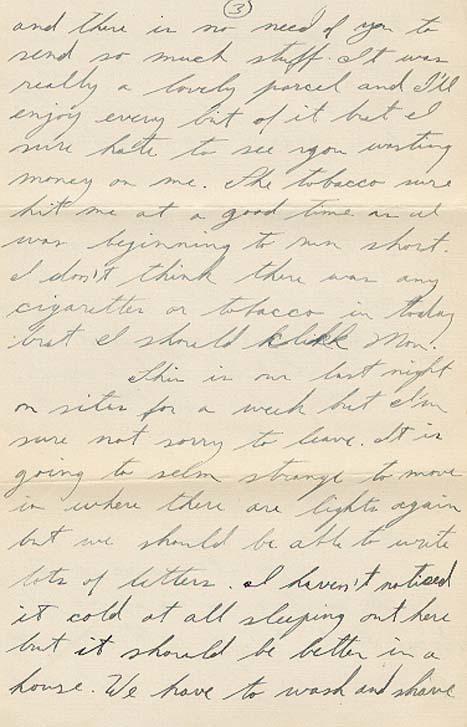 3
and there is no need of you to
send so much stuff. It was
really a lovely parcel and I'll
enjoy every bit of it but I
sure hate to see you wasting
money on me. The tobacco sure
hit me at a good time as I
was beginning to run short.
I don't think there was any
cigarettes or tobacco in today
but I should klick Mon.
This is our last night
on sites for a week but I'm
sure not sorry to leave. It is
going to seem strange to move
in where there are lights again
but we should be able to write
lots of letters. I haven't noticed
it cold at all sleeping out here
but it should be better in a
house. We have to wash and shave